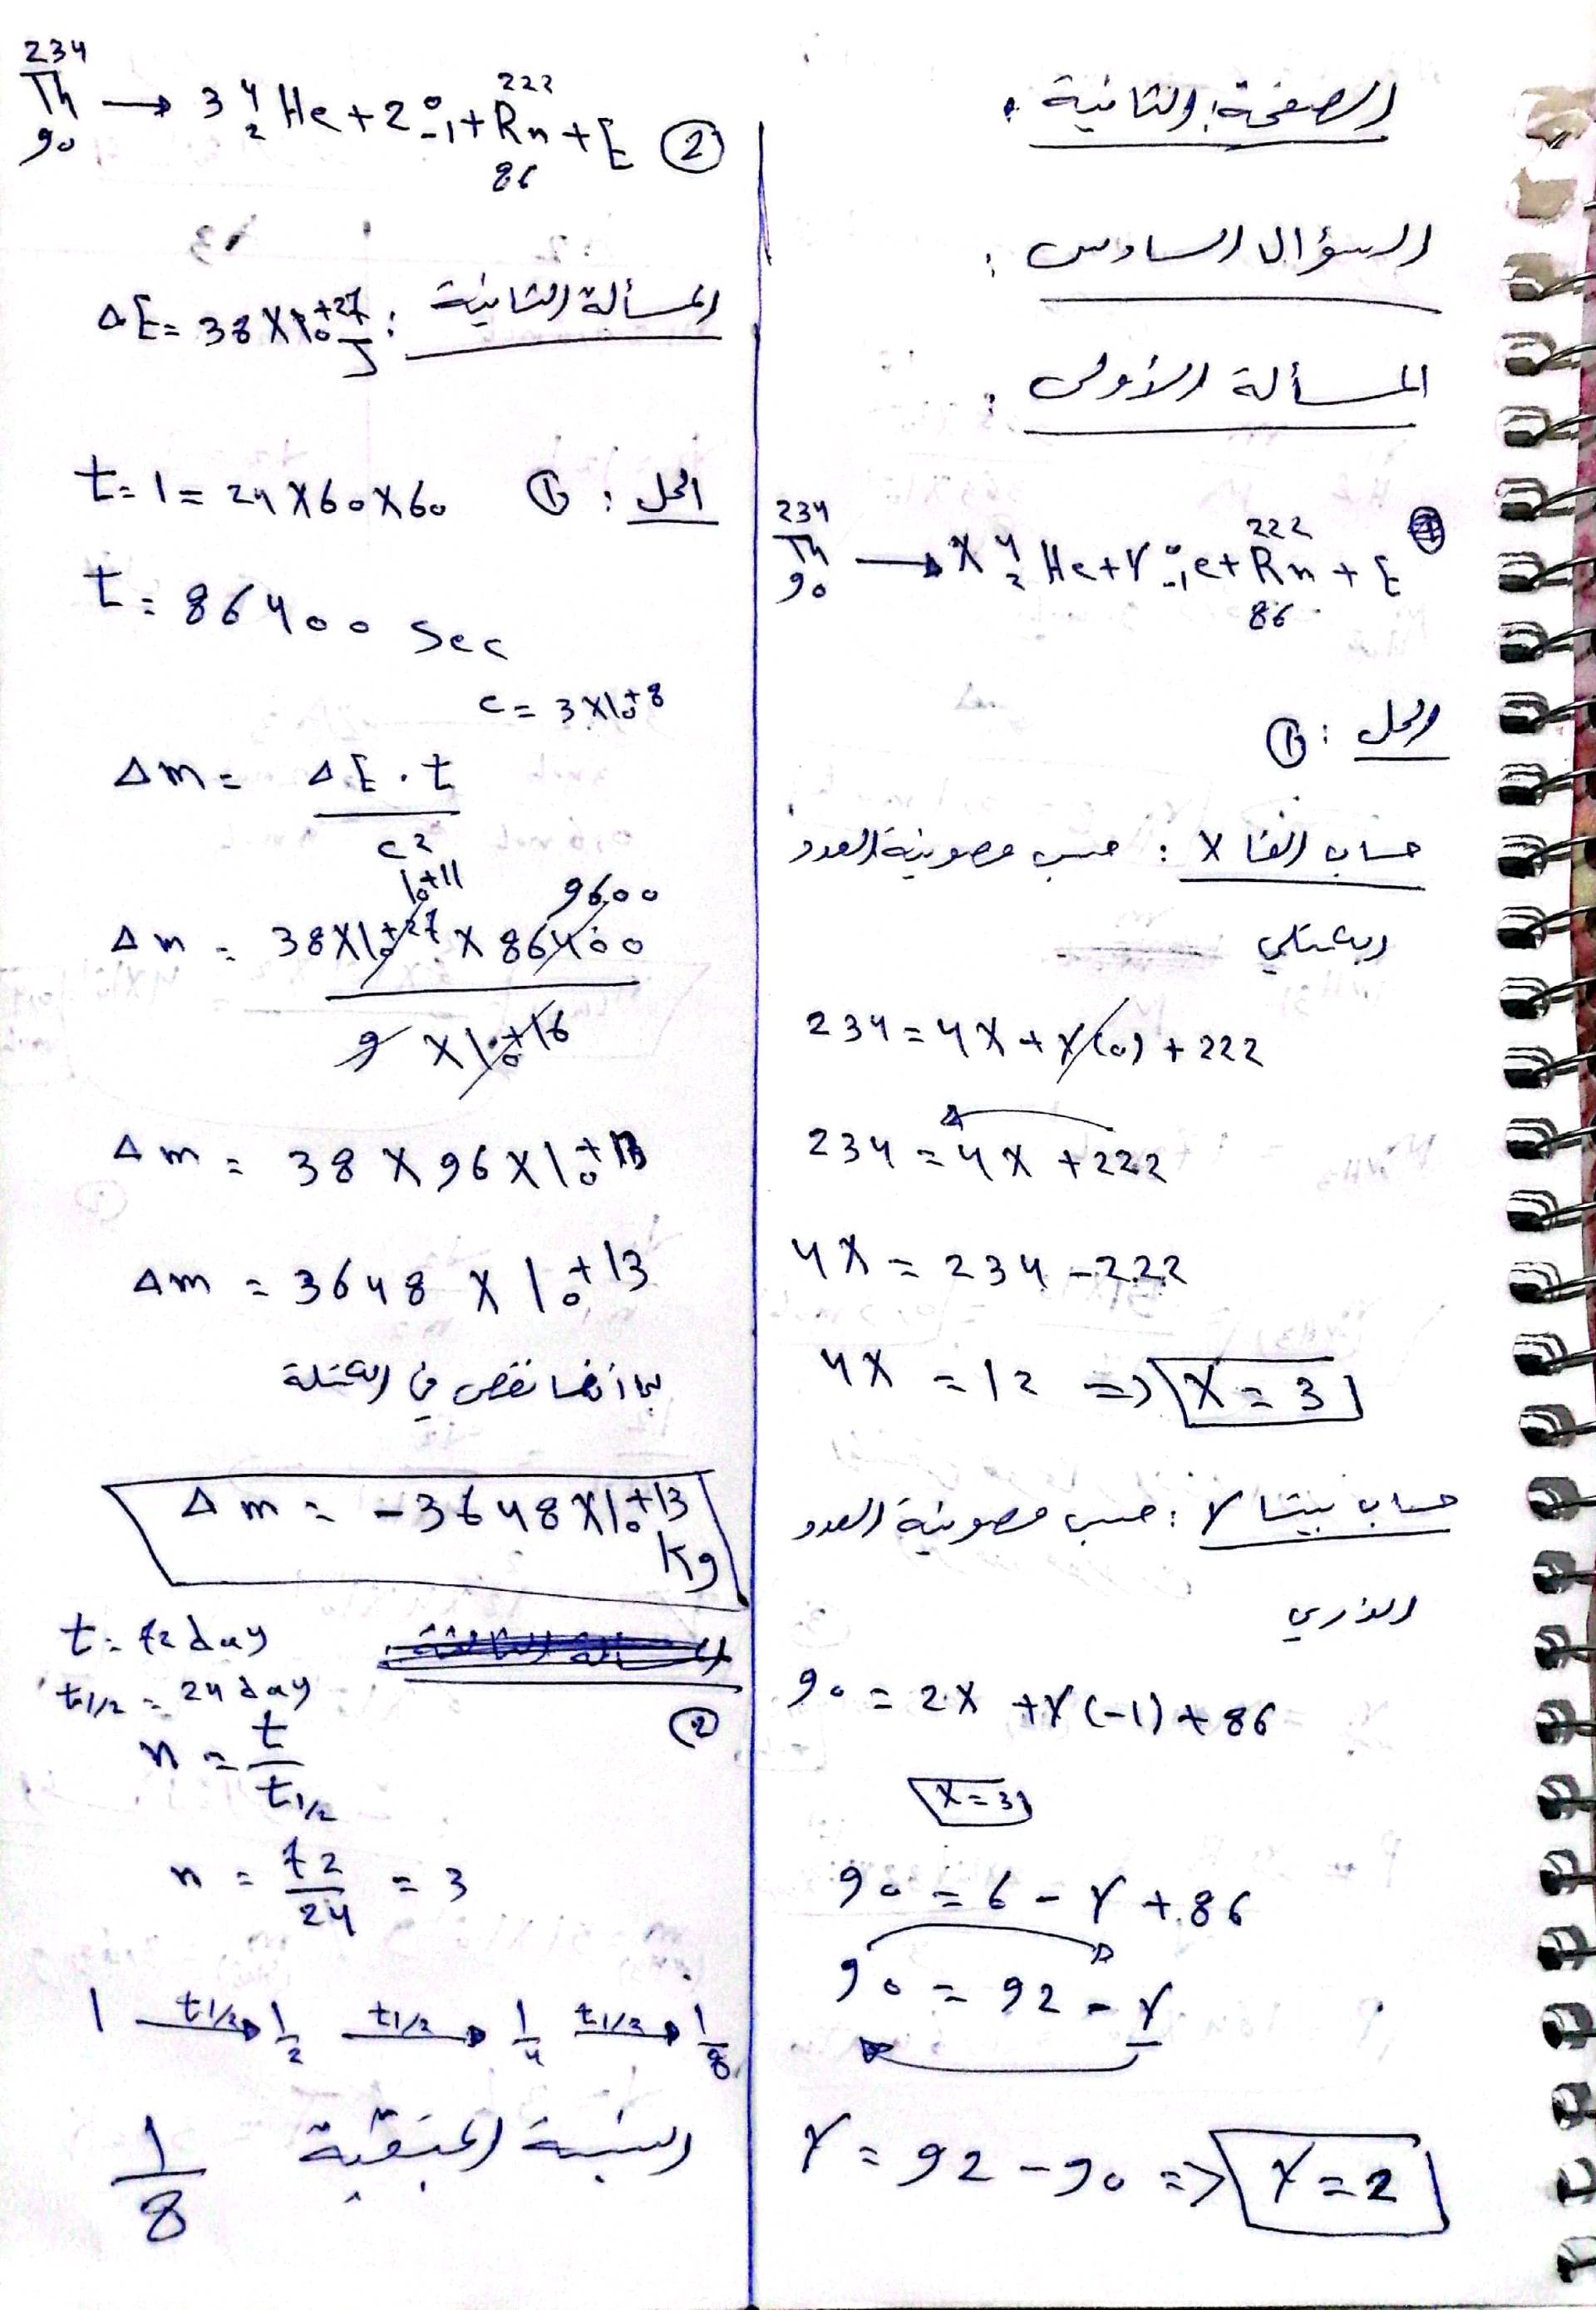 الصفحة الثانية :
السؤال السادس :
المسألة الأولى :
²³⁴₉₀Th → X ⁴₂He + Y ⁰₋₁e + ²²²₈₆Rn + E
الحل : ①
حساب الفا X : حسب مصونية العدد
الكتلي
234 = 4X + Y(0) + 222
234 = 4X + 222
4X = 234 - 222
4X = 12 => X = 3
حساب بيتا Y : حسب مصونية العدد
الذري
90 = 2X + Y(-1) + 86
X = 3
90 = 6 - Y + 86
90 = 92 - Y
Y = 92 - 90 => Y = 2
²³⁴₉₀Th → 3 ⁴₂He + 2 ⁰₋₁ + ²²²₈₆Rn + E ②
المسألة الثانية : ΔE = 38 X 10⁺²⁷ J
الحل : ① t = 1 = 24 X 60 X 60
t = 86400 sec
c = 3 X 10⁺⁸
Δm = ΔE . t / c²
10⁺¹¹ 9600
Δm = 38 X 10⁺²⁷ X 86400 / 9 X 10⁺¹⁶
Δm = 38 X 96 X 10⁺¹³
Δm = 3648 X 10⁺¹³
بما أنها نقص في الكتلة
Δm = -3648 X 10⁺¹³ kg
t = 72 day
t1/2 = 24 day
②
n = t / t1/2
n = 72 / 24 = 3
1 t1/2→ 1/2 t1/2→ 1/4 t1/2→ 1/8
النسبة المتبقية 1/8